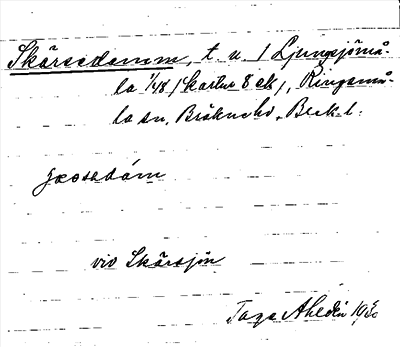 Skärsedamm, t. u. / Ljungsjömå-
la 1/48 / kartan 8 ek /, Ringamå-
la sn, Bräkne hd, Blek. l.
vid Skärsjön
Tage Ahldén